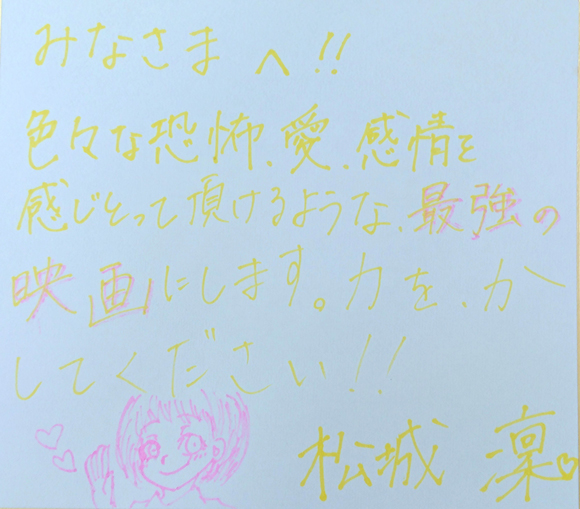 みなさま へ!!
色々な恐怖、愛、感情を
感じとって頂けるような、最強の
映画にします。力を、か
してください!!
松城 凜